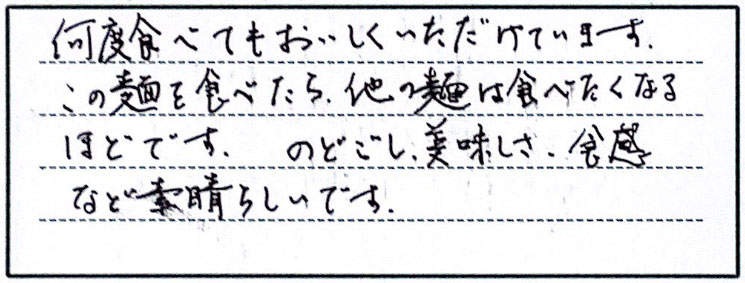 何度食べてもおいしくいただけています.
この麺を食べたら、他の麺は食べたくなる
ほどです.　のどごし、美味しさ、食感
など素晴らしいです.